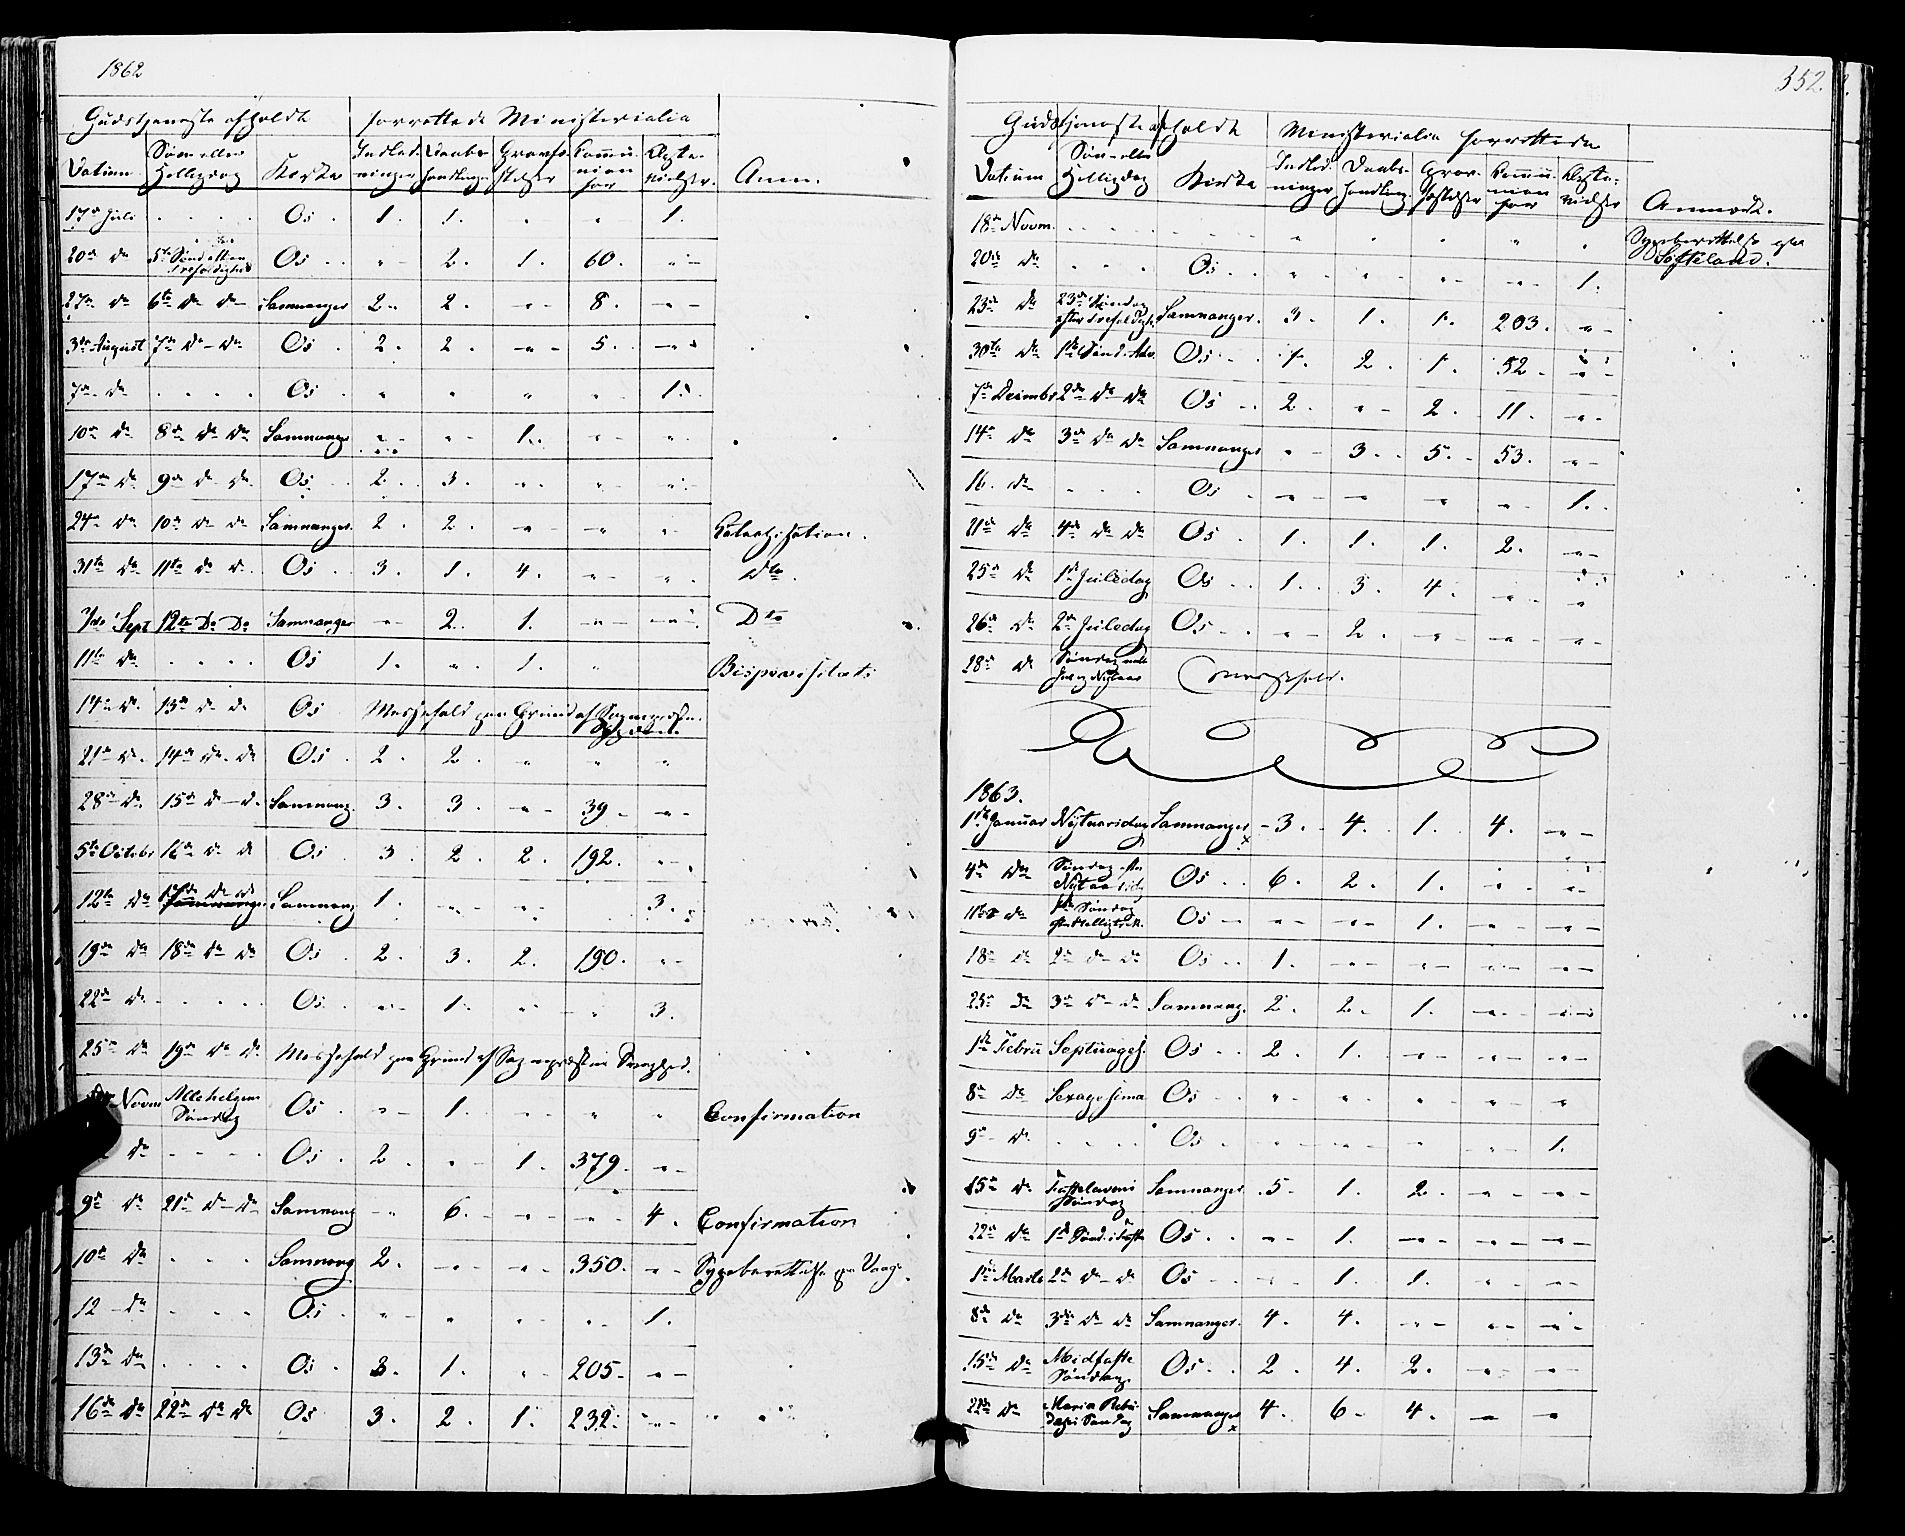 1862
Gudstjeneste afholdt forrettede Ministerialia
Datum Søn eller Helligdag Kirke Indled-ninger Daabs-handlinger Græsfæ-stelser Commu-nion for Ægte-vielser. Anm.
17de Juli . . . . Os 1. 1. " " 1.
20de do 5te Søndag efter Trefoldighed Os " - 2. 1. 60. " -
27de do 6te do do Samnanger 2. 2. " - 8. " -
3die August 7de do - do Os 2. 2. " - 5. " -
7de do . . . . Os " " " " - 1.
10de do 8de do do Samnanger " - " - 1. " - " -
17de do 9de do do Os 2. 3. " - " - " -
24de do 10de do do Samnanger. 2. 2. " - " - " - Katechisation.
31te do 11te do do Os 3. 1. 4. " - " - dto.
7de Sept 12te Do Do Samnanger " - 2. 1. " - " - Dto
11te do . . . . Os 1. " 1. " Bispevisitats
14de do 13de do do Os Messefald paa Grund af Sognepræstens Sygdom.
21de do 14de do do Os 2. 2. " " "
28de do 15de do - do Samnang. 3. 3. " - 39 - " -
5te Octobr 16de do do Os 3. 2. 2. 192. " -
12te do 17de do do Samnang 1. " - " - 3.
19de do 18de do do Os 2. 3. 2. 190. " -
22de do - . . . . Os " - 1. " - " 3.
25de do 19de do do Messefald paa Grund af Sognepræstens Svaghed.
Novm Allehelgens Søndag Os " - 1. " - " " Confirmation
do - - - - Os. 2. " - 1. 379. " -
9de do 21de do - do Samnang " - 6. " - " - 4. Confirmation
10de do - - - Samnang 2. " - " - 350. " - Sygeberettelse paa
12 - do . . . Os. " - " " - " - 1.
13de do . . . . Os 3. 1. " - 205 - " -
16de do 22de do do Os 3. 2. 1. 232. " -
352.
Gudstjeneste afholdt Ministerialia forrettede
Datum Søn- eller Helligdag Kirke Indled-ninger Daabs-handling Græs-fæstelser Commu-nion for Ægte-vielser Anmærk.
18de Novm. . . . . - - - - " " " " " Sygeberettelse paa Søfteland.
20de do " " " Os " - " - " - " - 1.
23de do 23de Søndag efter Trefoldigh. Samnanger. 3. 1. 1. 203. " -
30te do 1ste Sønd. Adv. Os 1. 2. 1. 52. " -
7de Decembr 2de do - do Os 2. " - 2. 11. " -
14de do 3die do do Samnanger " - 3. 5. 53. " -
16. do - - - Os " - " - " - " - 1.
21de do 4de do do Os 1. 1. 1. 2. " -
25de do 1ste Juledag Os 1. 3. 4. " - "
26de do 2den Juledag Os " - 2. " - " - " -
28de do Søndag mell. Jul og Nytaar Messefald.
1863.
1ste Januar Nytaarsdag Samnanger - 3. - 4. 1. 4. " -
4de do Søndag efter Nytaarsdag Os 6. 2. 1. " - " -
11te do 1ste Søndag efter Helligtrek. Os - " - " - 1. " - " -
18de do 2de do do Os 1. " - " - " - " -
25de do 3die do - do Samnang. 2. 2. 1. " - " -
1ste Febru Septuages. Os 2. 1. " - " - " -
8de do Sexagesima Os " " - " - " - "
9de - do . . . . Os " - " - " - " - 1.
15de do Fastelavens Søndag Samnanger 5 - 1. 2. " - " -
22de do 1ste Sønd. i Faste Os " - 1. " - " - " -
1ste Marts 2de do - do Os " - 1. 1. " - " -
8de do 3die do do Samnanger. 4. 4. " - " - " -
15de do Midfaste Søndag. Os 2. 4. 2. " - " -
22de do Maria Bebudelses Søndag Samnanger 4. 6 - 4. " - " -